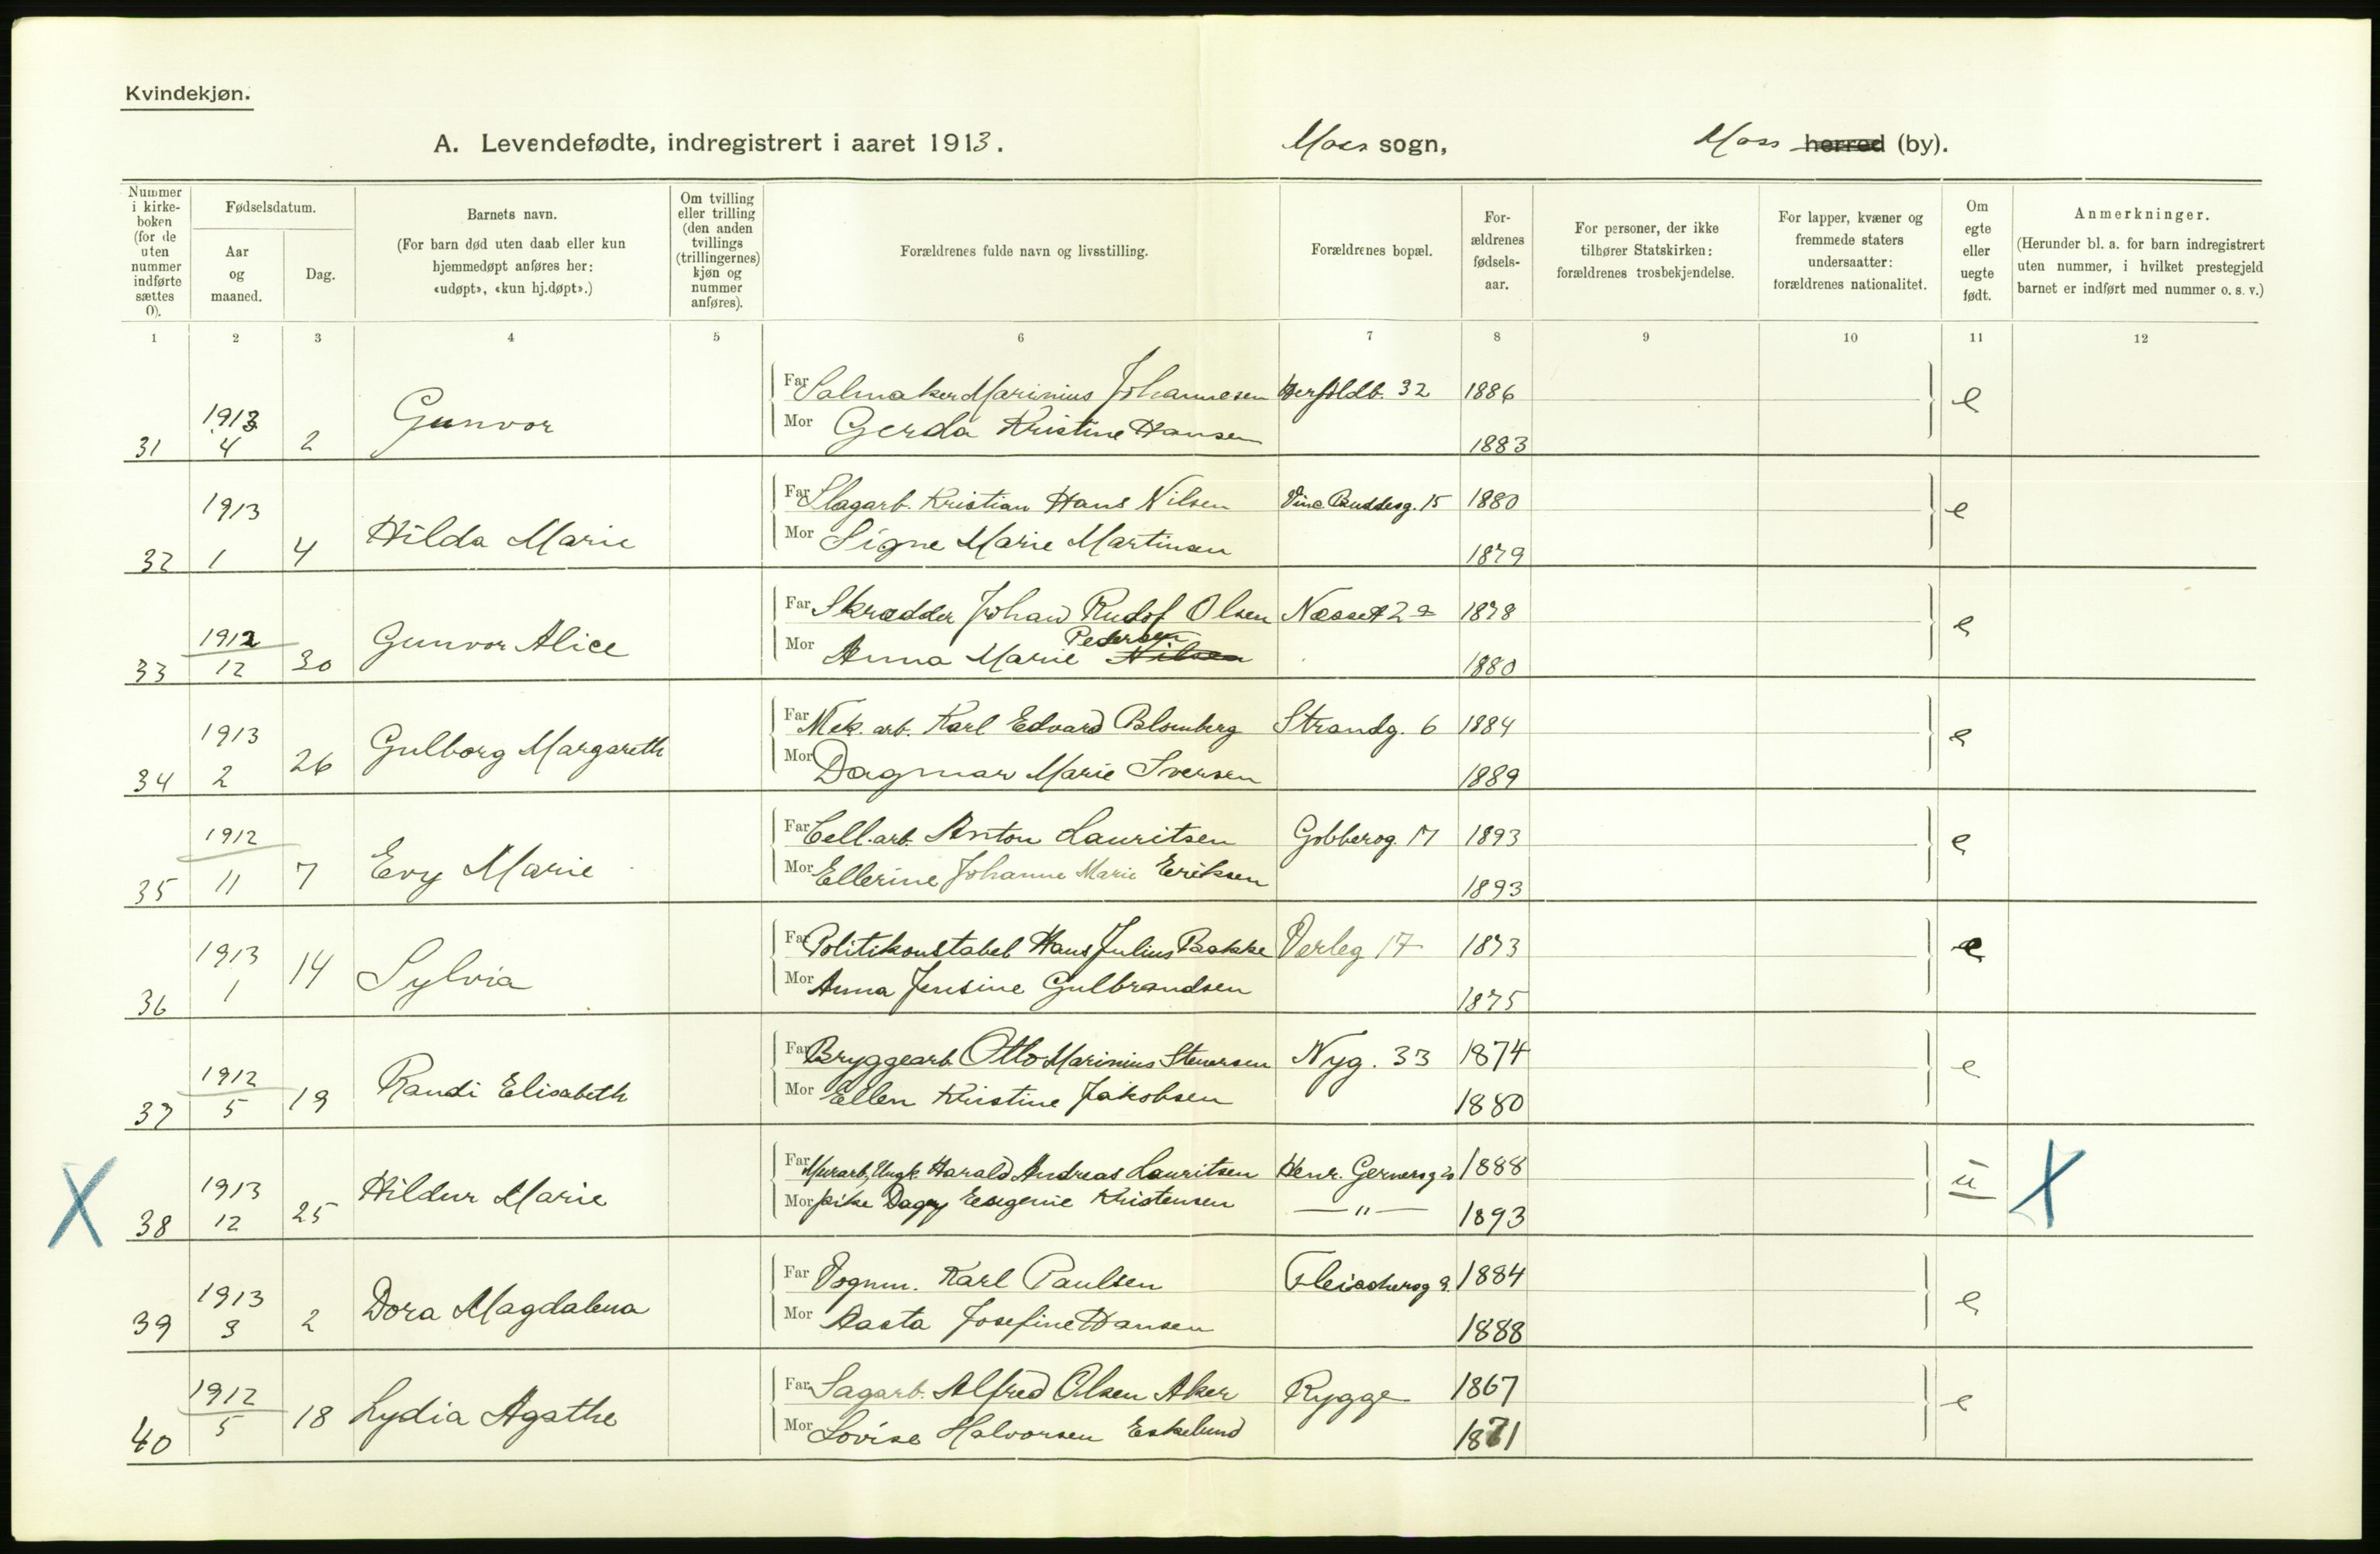 Kvindekjøn.
A. Levendefødte, indregistrert i aaret 1913.
Moss sogn,
Moss herred (by).
Nummer i kirke-boken (for de uten nummer indførte sættes 0).
Fødselsdatum.
Aar og maaned.
Dag.
Barnets navn.
(For barn død uten daab eller kun hjemmedøpt anføres her: «udøpt», «kun hj.døpt».)
Om tvilling eller trilling (den anden tvillings (trillingernes) kjøn og nummer anføres).
Forældrenes fulde navn og livsstilling.
Forældrenes bopæl.
For-ældrenes fødsels-aar.
For personer, der ikke tilhører Statskirken: forældrenes trosbekjendelse.
For lapper, kvæner og fremmede staters undersaatter: forældrenes nationalitet.
Om egte eller uegte født.
Anmerkninger.
(Herunder bl. a. for barn indregistrert uten nummer, i hvilket prestegjeld barnet er indført med nummer o. s. v.)
1 2 3 4 5 6 7 8 9 10 11 12
Far Salmaker Marinius Johannesen 32 1886 e
31 1913 4 2 Gunvor
Mor Gerda Kristine Hansen 1883
Far Slagarb. Kristian Hans Nilsen Vinc. Buddesg. 15 1880 e
32 1913 1 4 Hilda Marie
Mor Signe Marie Martinsen 1879
Far Skrædder Johan Rudof Olsen Næsset 2 a 1878 e
33 1912 12 30 Gunvor Alice
Mor Anna Marie Nilsen Pedersen 1880
Far Mek. arb. Karl Edvard Blomberg Strandg. 6 1884 e
34 1913 2 26 Gulborg Margareth
Mor Dagmar Marie Iversen 1889
Far Cell.arb. Anton Lauritsen Gobberog. 17 1893 e
35 1912 11 7 Evy Marie
Mor Ellerine Johanne Marie Eriksen 1893
Far Politikonstabel Hans Julius Bakke Varleg 17 1873 e
36 1913 1 14 Sylvia
Mor Anna Jensine Gulbrandsen 1875
Far Bryggearb. Otto Marinius Stenersen Nyg. 33 1874 e
37 1912 5 19 Randi Elisabeth
Mor Ellen Kristine Jakobsen 1880
Far Murarb, Ungk. Harald Andreas Lauritsen Henr. Gernersg 20 1888 u X
X 38 1913 12 25 Hildur Marie
Mor pike Dagny Eugenie Kristensen — " — 1893
Far Vognm. Karl Paulsen Fleischersg 9. 1884 e
39 1913 3 2 Dora Magdalena
Mor Aasta Josefine Hansen 1888
Far Sagarb. Alfred Olsen Aker Rygge 1867 e
40 1912 5 18 Lydia Agathe
Mor Lovise Halvorsen Eskelund 1871